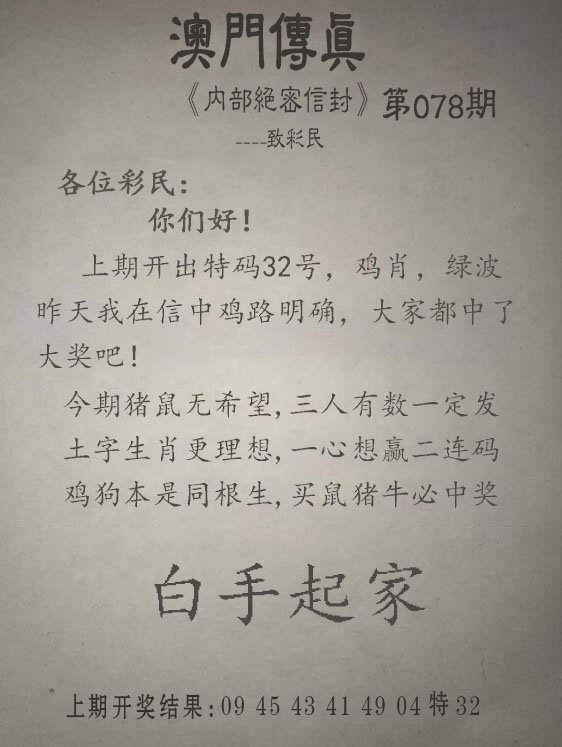 澳門傳真
《内部絕密信封》第078期
----致彩民
各位彩民:
你们好!
上期开出特码32号，鸡肖，绿波
昨天我在信中鸡路明确，大家都中了
大奖吧!
今期猪鼠无希望,三人有数一定发
土字生肖更理想,一心想赢二连码
鸡狗本是同根生,买鼠猪牛必中奖
白手起家
上期开奖结果:09 45 43 41 49 04特32